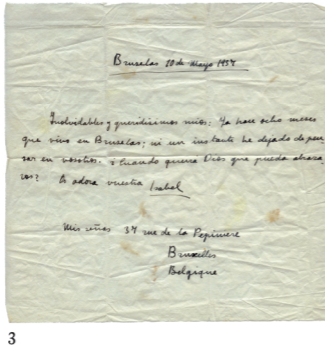 Bruselas 10 de Mayo 1937
Inolvidables y queridísimos míos: Ya hace ocho meses
que vivo en Bruselas; ni un instante he dejado de pen
sar en vosotros. ¿Cuando querra Dios que pueda abraza
ros? Os adora vuestra Isabel
Mis señas 37 rue de la Pepiniere
Bruxelles
Belgique
3